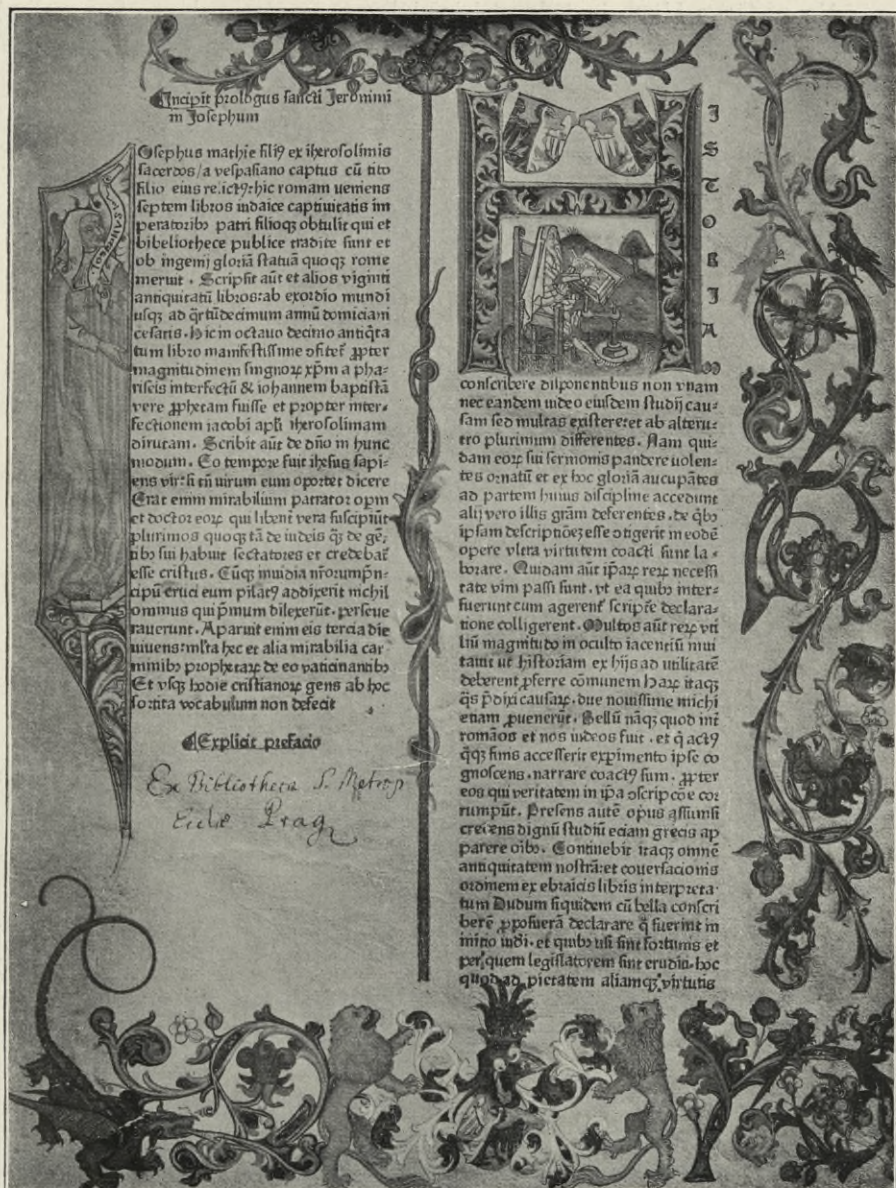 Incipit prologus sancti Jeronimi
in Josephum
Osephus mathie filiꝰ ex iherosolimis
sacerdos/a vespasiano captus cū tito
filio eius re.ictꝰ: hic romam ueniens
septem libros iudaice captiuitatis im
peratoribꝫ patri filioqꝫ obtulit qui et
bibeliothece publice tradite sunt et
ob ingenij gloriā statuā quoqꝫ rome
meruit . Scripsit aūt et alios viginti
antiquitatū libros: ab exordio mundi
usqꝫ ad qͣrtūdecimum annū domiciani
cesaris. Hic in octauo decimo antiq̄ta
tum libro manifestissime ꝯfitet͛ ꝓpter
magnitudinem singnoꝝ xp̄m a pha⸗
riseis interfectū & iohannem baptistā
vere ꝓphetam fuisse et propter inter⸗
fectionem iacobi apl̄i iherosolimam
dirutam. Scribit aūt de dn̄o in hunc
modum. Eo tempore fuit ihesus sapi⸗
ens vir: si tn̄ uirum eum oportet dicere
Erat enim mirabilium patrator oꝑm
et doctor eoꝝ qui libent͛ vera suscipiūt
plurimos quoqꝫ tā de iudeis qͣꝫ de gē⸗
tibꝫ sui habuit sectatores et credebat͛
esse cristus. Cūqꝫ inuidia nr̄orum pͥn⸗
cipū cruci eum pilatꝰ addixerit nichil
ominus qui pͥmum dilexerūt. perseue
rauerunt. Aparuit enim eis tercia die
uiuens: ml̄ta hec et alia mirabilia car⸗
minibꝫ prophetaꝝ de eo vaticinantibꝫ
Et vsqꝫ hodie cristianoꝝ gens ab hoc
sortita vocabulum non defecit
Explicit prefacio
Ex Bibliotheca S. Metrop
Eccl͛æ Prag
ISTORIA
conscribere disponentibus non vnam
nec eandem uideo eiusdem studij cau⸗
sam sed multas existere: et ab alteru⸗
tro plurimum differentes. Nam qui⸗
dam eoꝝ sui sermonis pandere uolen⸗
tes ornatū et ex hoc gloriā aucupātes
ad partem huius discipline accedunt
alij vero illis grām deferentes. de qͥbꝫ
ipsam descriptiōeꝫ esse ꝯtigerit in eodē
opere vltra virtutem coacti sunt la⸗
borare. Quidam aūt ip̄aꝝ reꝝ necessi
tate vim passi sunt. vt ea quibꝫ inter⸗
fuerunt cum agerent͛ scriptͤ declara⸗
tione colligerent. Multos aūt reꝝ vti
liū magnitudo in oculto iacentiū inui
tauit ut historiam ex hijs ad utilitatē
deberent ꝓferre cōmunem Haꝝ itaqꝫ
qͣs p̄dixi causaꝝ. due nouissime michi
etiam ꝓuenerūt. Bellū nāqꝫ quod int͛
romāos et nos iudeos fuit . et q̄ actꝰ
qͥqꝫ finis accesserit exꝑimento ipse co
gnoscens. narrare coactꝰ sum. ꝓpter
eos qui veritatem in ip̄a ꝯscripcōe cor
rumpūt. Presens autē opus assumsi
credens dignū studiū eciam grecis ap
parere oībꝫ. Continebit itaqꝫ omnē
antiquitatem nostrā: et couersacionis
ordinem ex ebraicis libris interpreta⸗
tum Dudum siquidem cū bella conscri
berē ꝓposuerā declarare q̄ fuerint in
inicio iudi. et quibꝫ usi sint fortunis et
per quem legislatorem sint eruditi. hoc
quod ad pietatem aliamqꝫ virtutis